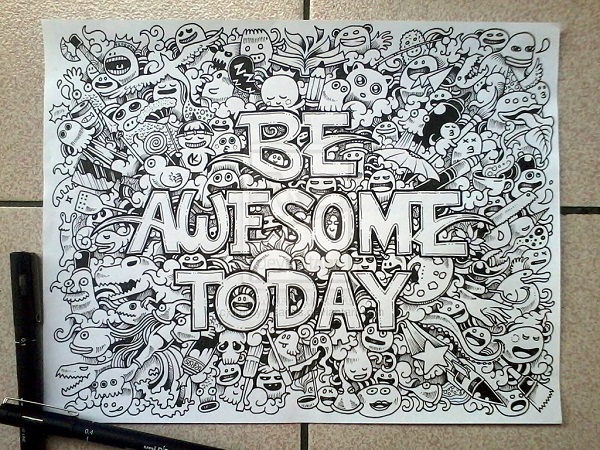 BE
AWESOME
TODAY
0.4